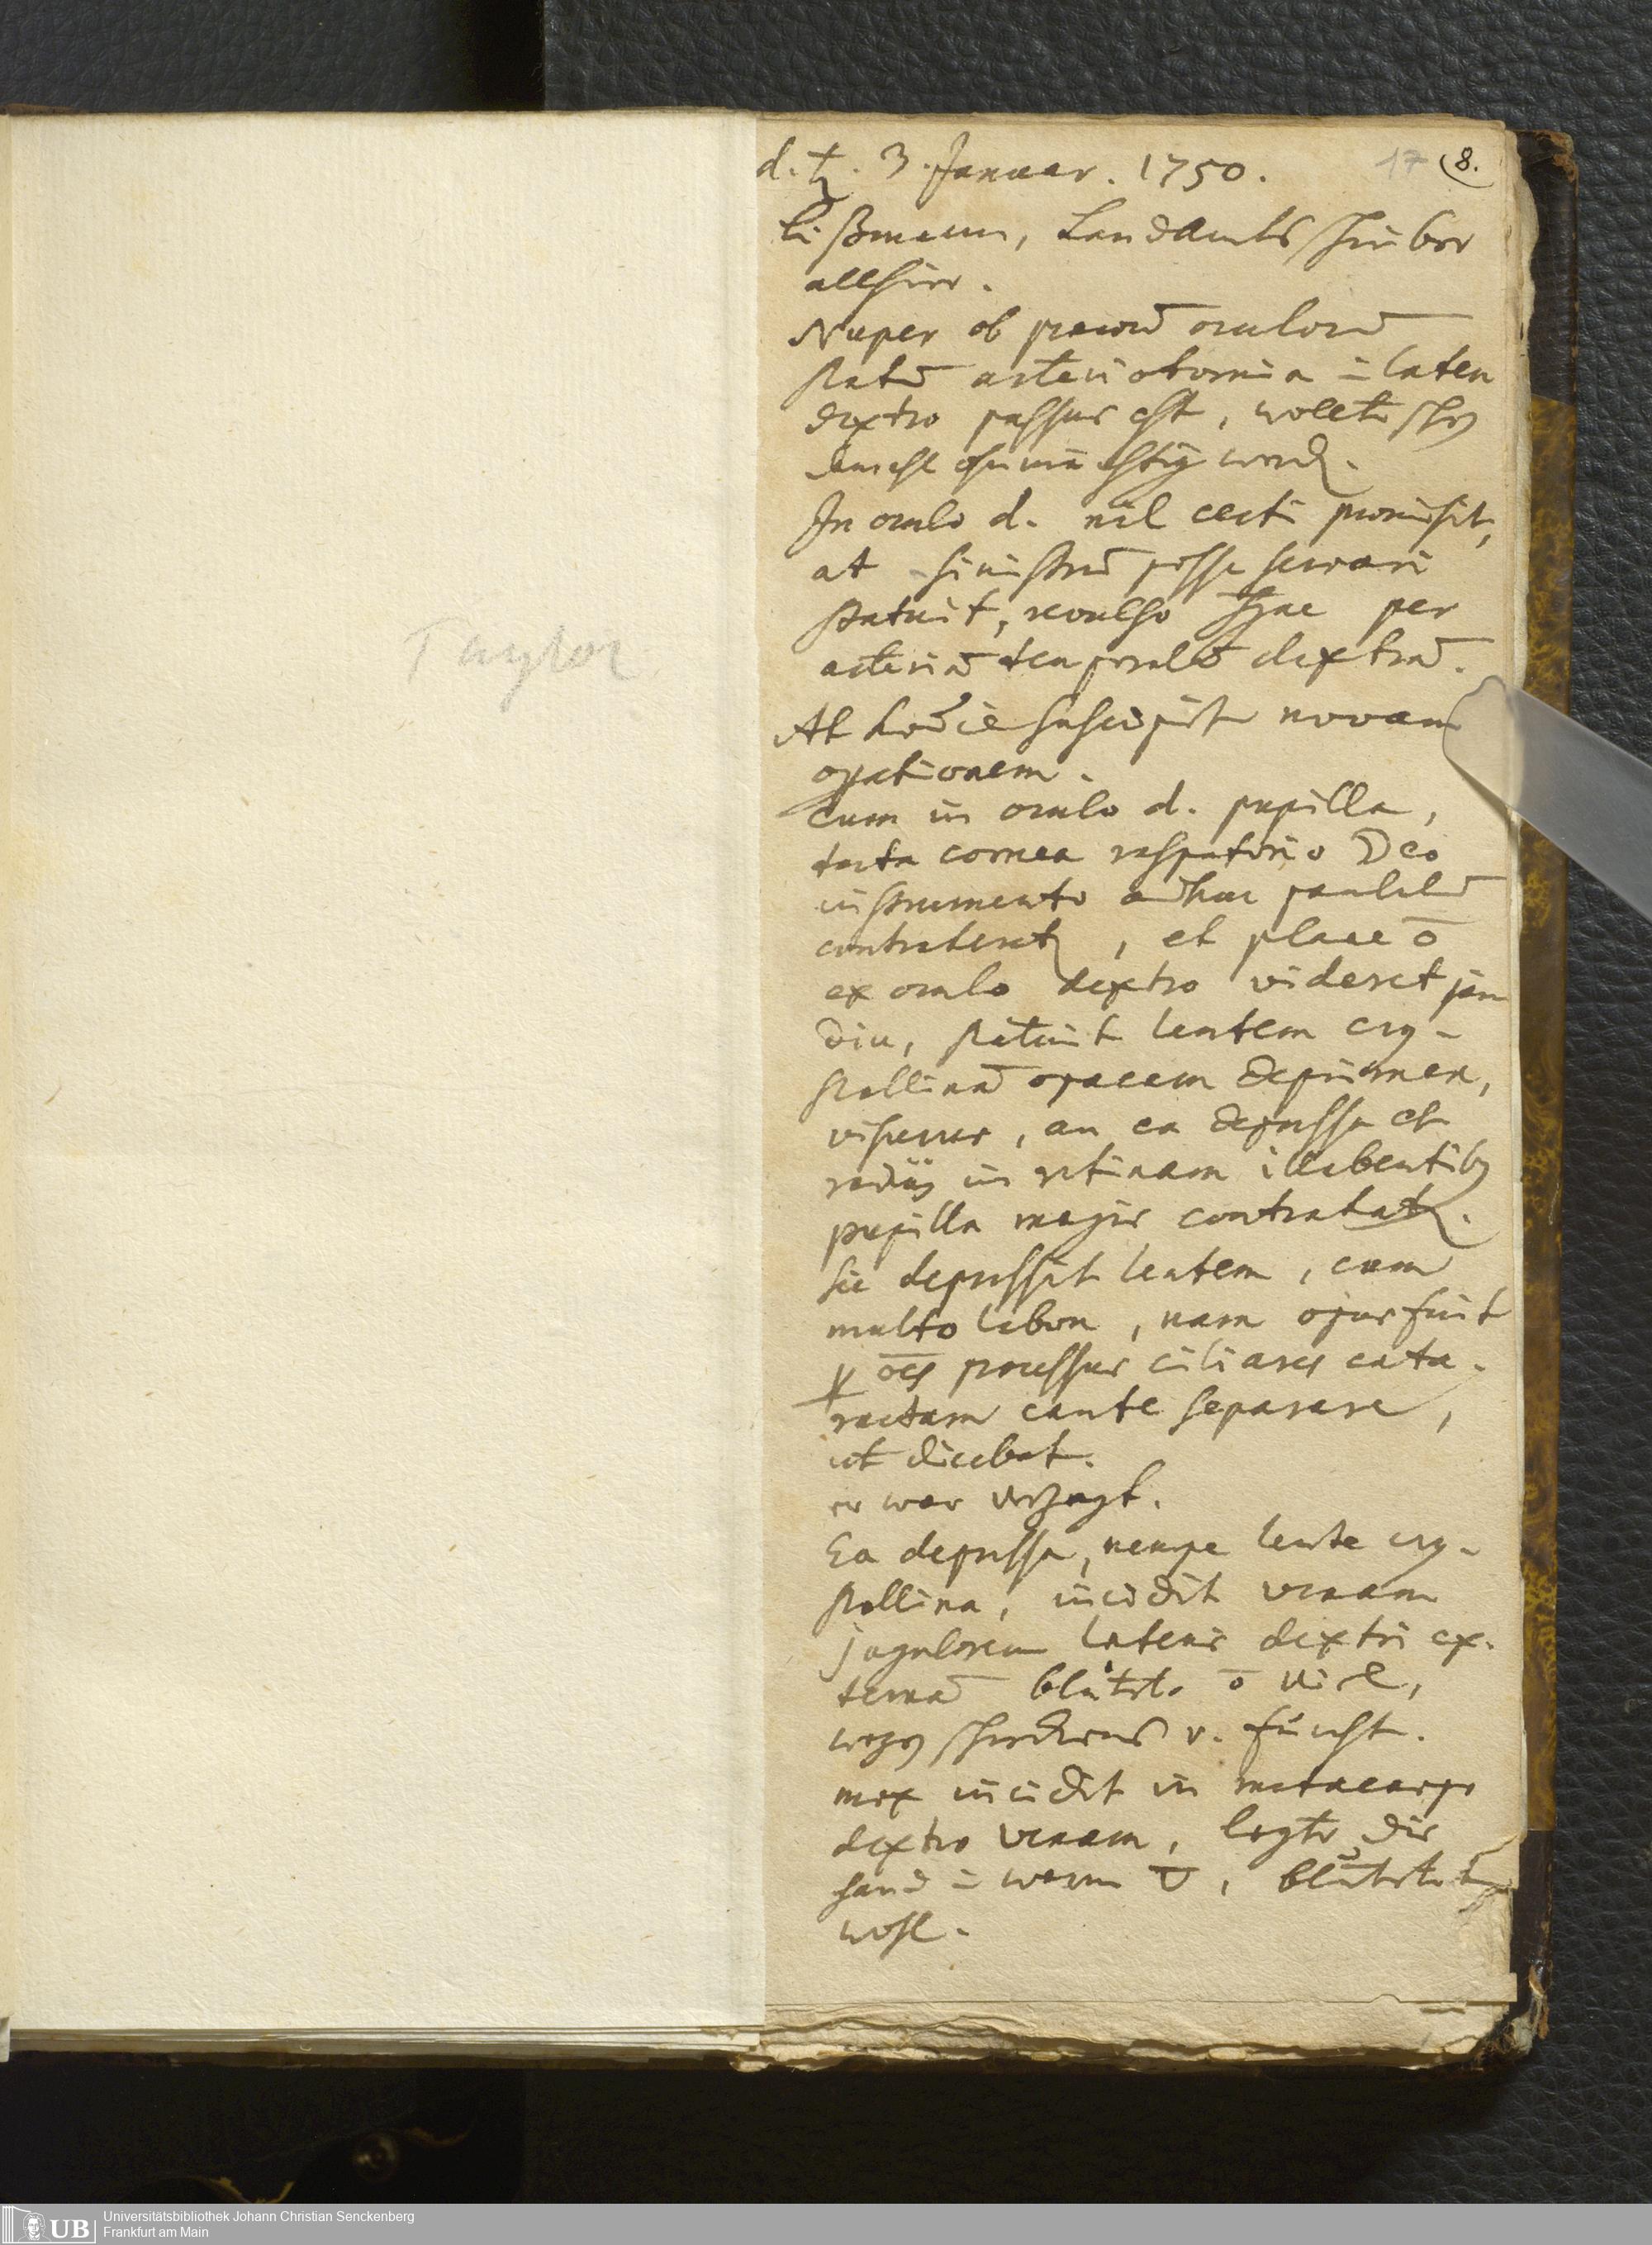 Taylor
d. ♄. 3. Januar. 1750.
17 (8.
Lißmann, Landamtsschreiber
allhier.
Nuper ob pravū oculorū
statū arteriotomia ī latere
dextro passus est, wollte schon
damahl ohnmächtig werd.
In oculo d. nil certi promisit,
at sinistrū posse servari
statuit, revulso per
arteriā temporalē dextrā.
At hodie suscipit novam
opationem.
Cum in oculo d. pupilla,
tacta cornea raspatorio Deo
instrumento adhuc paululū
contraheret, et plane ō
ex oculo dextro videret jam
diu, statuit lentem cry-
stallinā opacam deprimere,
visurus, an ea depressa et
radiis in retinam illabentibq
pupilla magis contrahat.
Sic depressit lentem, cum
multo labore, nam opus fuit
p ōes processus ciliares cata-
ractam caute separare,
ut dicebat.
er war verzagt.
Ea depressa, nempe lente cry-
stallina, incidit venam
jugularem lateris dextri ex-
ternā blutete ō viel,
wegen schreckens u. furcht.
mox incidit in metacarpo
dextro venam, legte die
hand ī warm ▽, blutete
wohl.
Universitätsbibliothek Johann Christian Senckenberg
Frankfurt am Main
UB